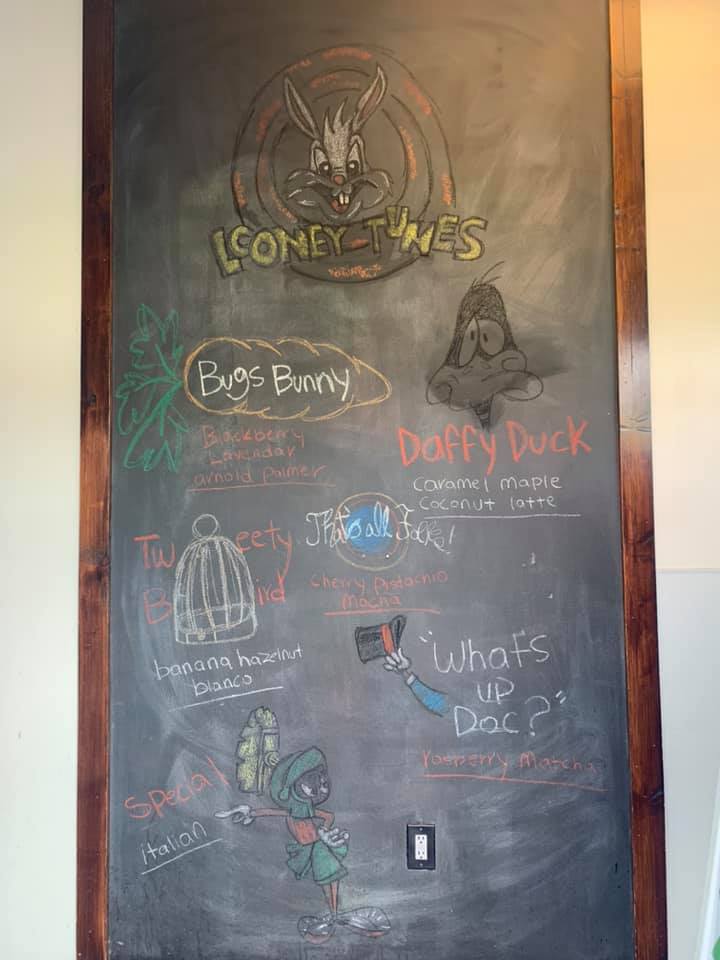 LOONEY TUNES
Bugs Bunny
Blackberry
Lavendar
arnold palmer
Daffy Duck
caramel maple
coconut latte
Tweety
Bird
banana hazelnut
blanco
That's all Folks!
cherry pistachio
mocha
"What's
up
Doc?"
raspberry matcha
Special
italian